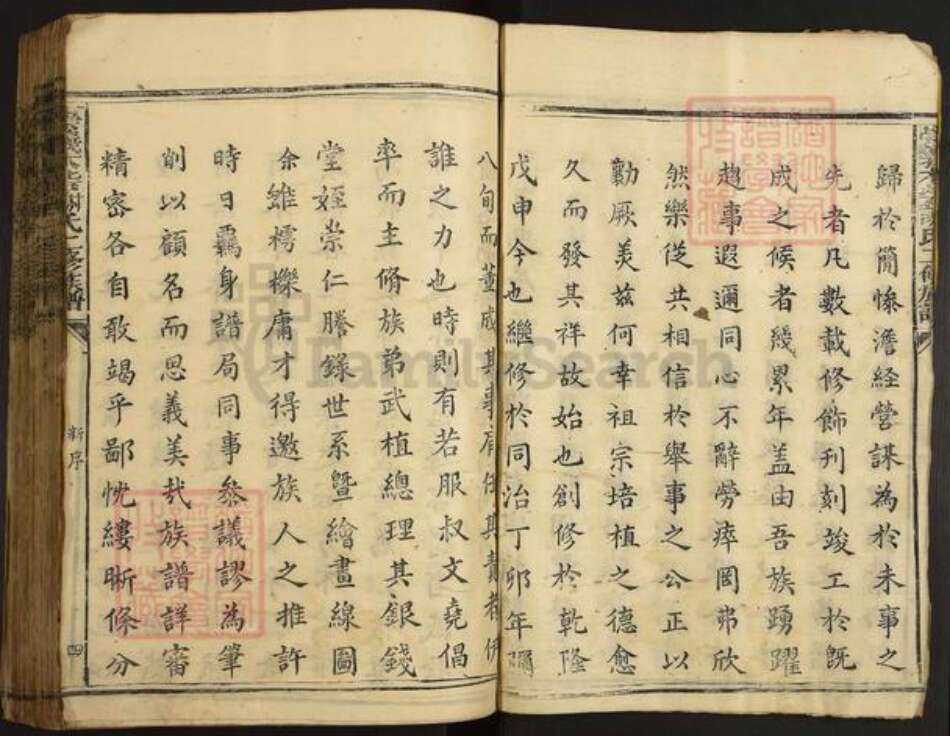 歸於簡慘澹経營謀為於未事之
先者凡數載修飾刊刻竣工於旣
成之候者幾累年盖由吾族踴躍
趨事遐邇同心不辭勞瘁罔弗欣
然樂從共相信於舉事之公正以
勷厥美茲何幸祖宗培植之德愈
久而發其祥故始也創修於乾隆
戊申今也繼修於同治丁卯年彌
八旬而董成其事肩任其責者伊
誰之力也時則有若服叔文堯倡
率而主脩族弟武植總理其銀錢
堂姪崇仁謄錄世系曁繪畫線圖
余雖樗櫟庸才得邀族人之推許
時日羈身譜局同事叅議謬為筆
削以顧名而思義美哉族譜詳審
精密各自敢竭乎鄙忱縷晰條分
新序
四
FamilySearch